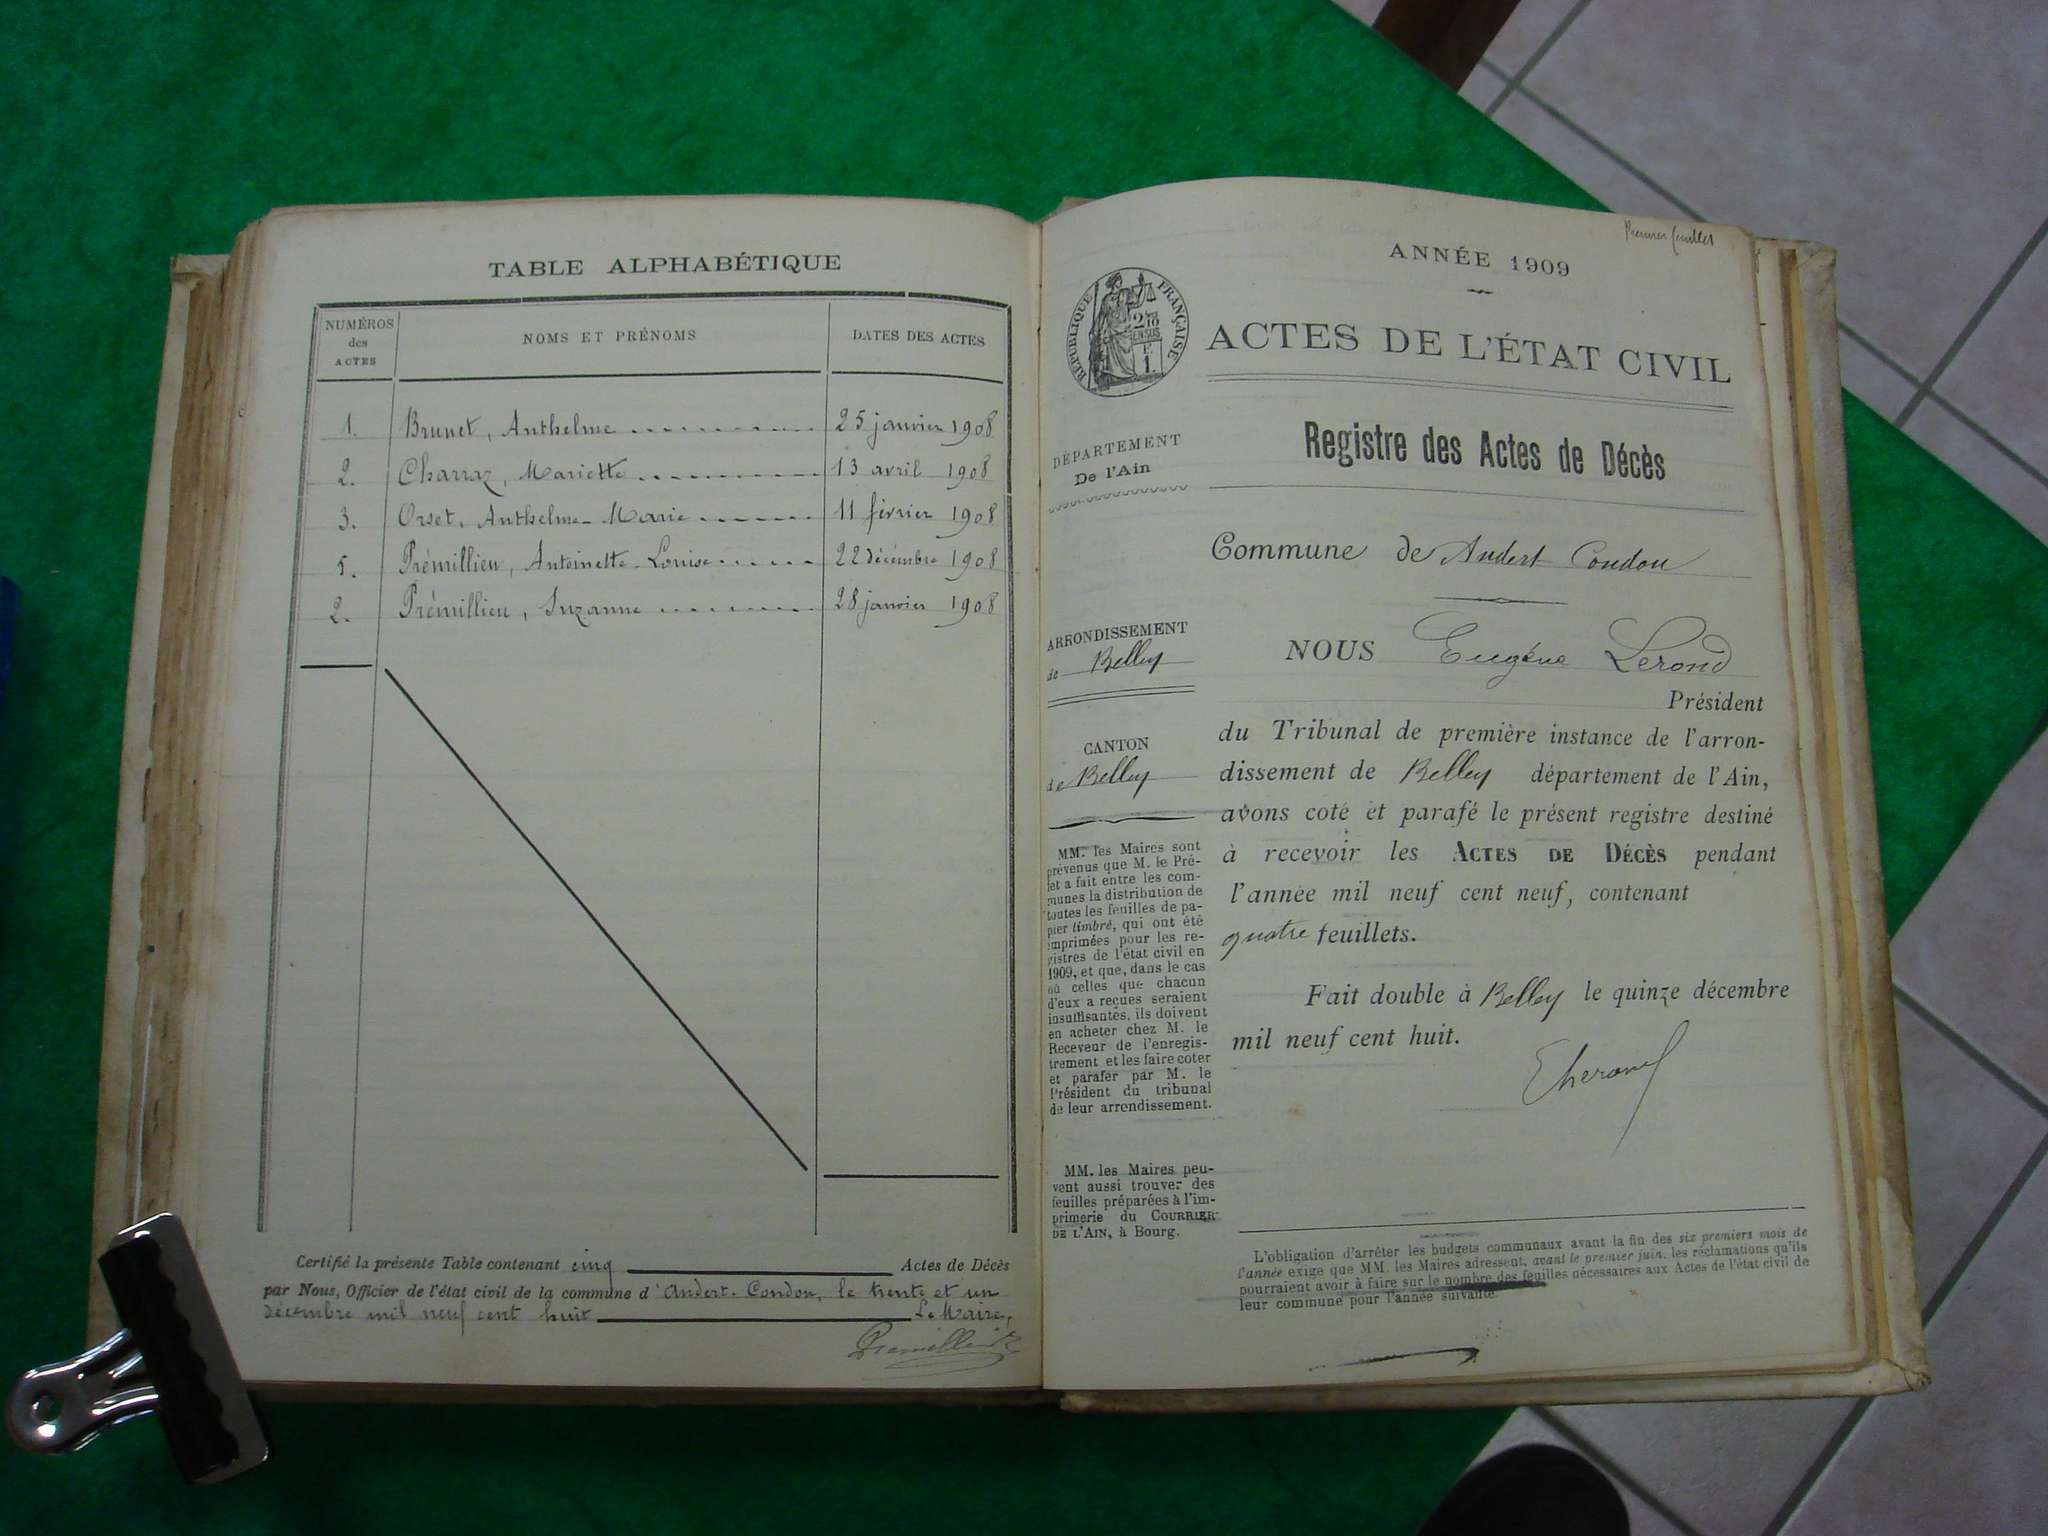 TABLE ALPHABÉTIQUE
NUMÉROS
des
ACTES
NOMS ET PRÉNOMS
DATES DES ACTES
1. Brunet, Anthelme 25 janvier 1908
2. Charraz, Mariette 13 avril 1908
3. Orset, Anthelme-Marie 11 février 1908
5. Prémillieu, Antoinette-Louise 22 décembre 1908
2. Prémillieu, Suzanne 28 janvier 1908
Certifié la présente Table contenant cinq Actes de Décès
par Nous, Officier de l'état civil de la commune d'Andert-Condon, le trente et un
décembre mil neuf cent huit Le Maire,
Premier feuillet
ANNÉE 1909
RÉPUBLIQUE FRANÇAISE
ACTES DE L'ÉTAT CIVIL
DÉPARTEMENT
De l'Ain
Registre des Actes de Décès
Commune de Andert Condon
ARRONDISSEMENT
de Belley
CANTON
de Belley
MM. les Maires sont
prévenus que M. le Pré-
fet a fait entre les com-
munes la distribution de
toutes les feuilles de pa-
pier timbré, qui ont été
imprimées pour les re-
gistres de l'état civil en
1909, et que, dans le cas
où celles que chacun
d'eux a reçues seraient
insuffisantes, ils doivent
en acheter chez M. le
Receveur de l'enregis-
trement et les faire coter
et parafer par M. le
Président du tribunal
de leur arrondissement.
MM. les Maires peu-
vent aussi trouver des
feuilles préparées à l'im-
primerie du COURRIER
DE L'AIN, à Bourg.
NOUS Eugène Lerond
Président
du Tribunal de première instance de l'arron-
dissement de Belley département de l'Ain,
avons coté et parafé le présent registre destiné
à recevoir les ACTES DE DÉCÈS pendant
l'année mil neuf cent neuf, contenant
quatre feuillets.
Fait double à Belley le quinze décembre
mil neuf cent huit.
L'obligation d'arrêter les budgets communaux avant la fin des six premiers mois de
l'année exige que MM. les Maires adressent, avant le premier juin, les réclamations qu'ils
pourraient avoir à faire sur le nombre des feuilles nécessaires aux Actes de l'état civil de
leur commune pour l'année suivante.